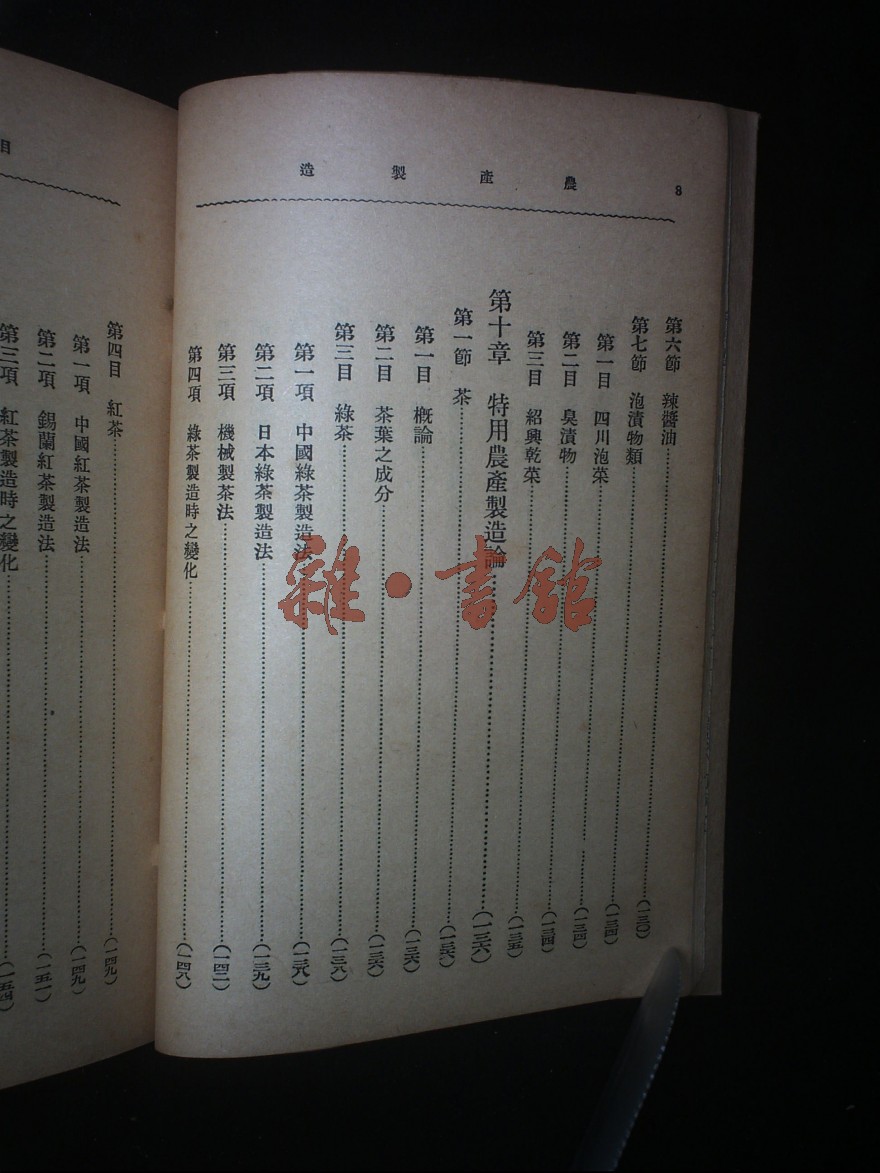 8
農產製造
第六節　辣醬油……(一三〇)
第七節　泡漬物類……(一三四)
第一目　四川泡菜……(一三四)
第二目　臭漬物……(一三四)
第三目　紹興乾菜……(一三五)
第十章　特用農產製造論……(一三六)
第一節　茶……(一三六)
第一目　概論……(一三六)
第二目　茶葉之成分……(一三六)
第三目　綠茶……(一三八)
第一項　中國綠茶製造法……(一三八)
第二項　日本綠茶製造法……(一三九)
第三項　機械製茶法……(一四二)
第四項　綠茶製造時之變化……(一四八)
雜·書館
目
第四目　紅茶……(一四九)
第一項　中國紅茶製造法……(一四九)
第二項　錫蘭紅茶製造法……(一五一)
第三項　紅茶製造時之變化……(一五四)